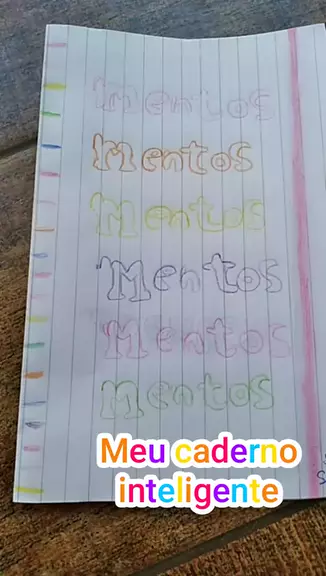 Mentos
Mentos
Mentos
Mentos
Mentos
Mentos
Meu caderno
inteligente